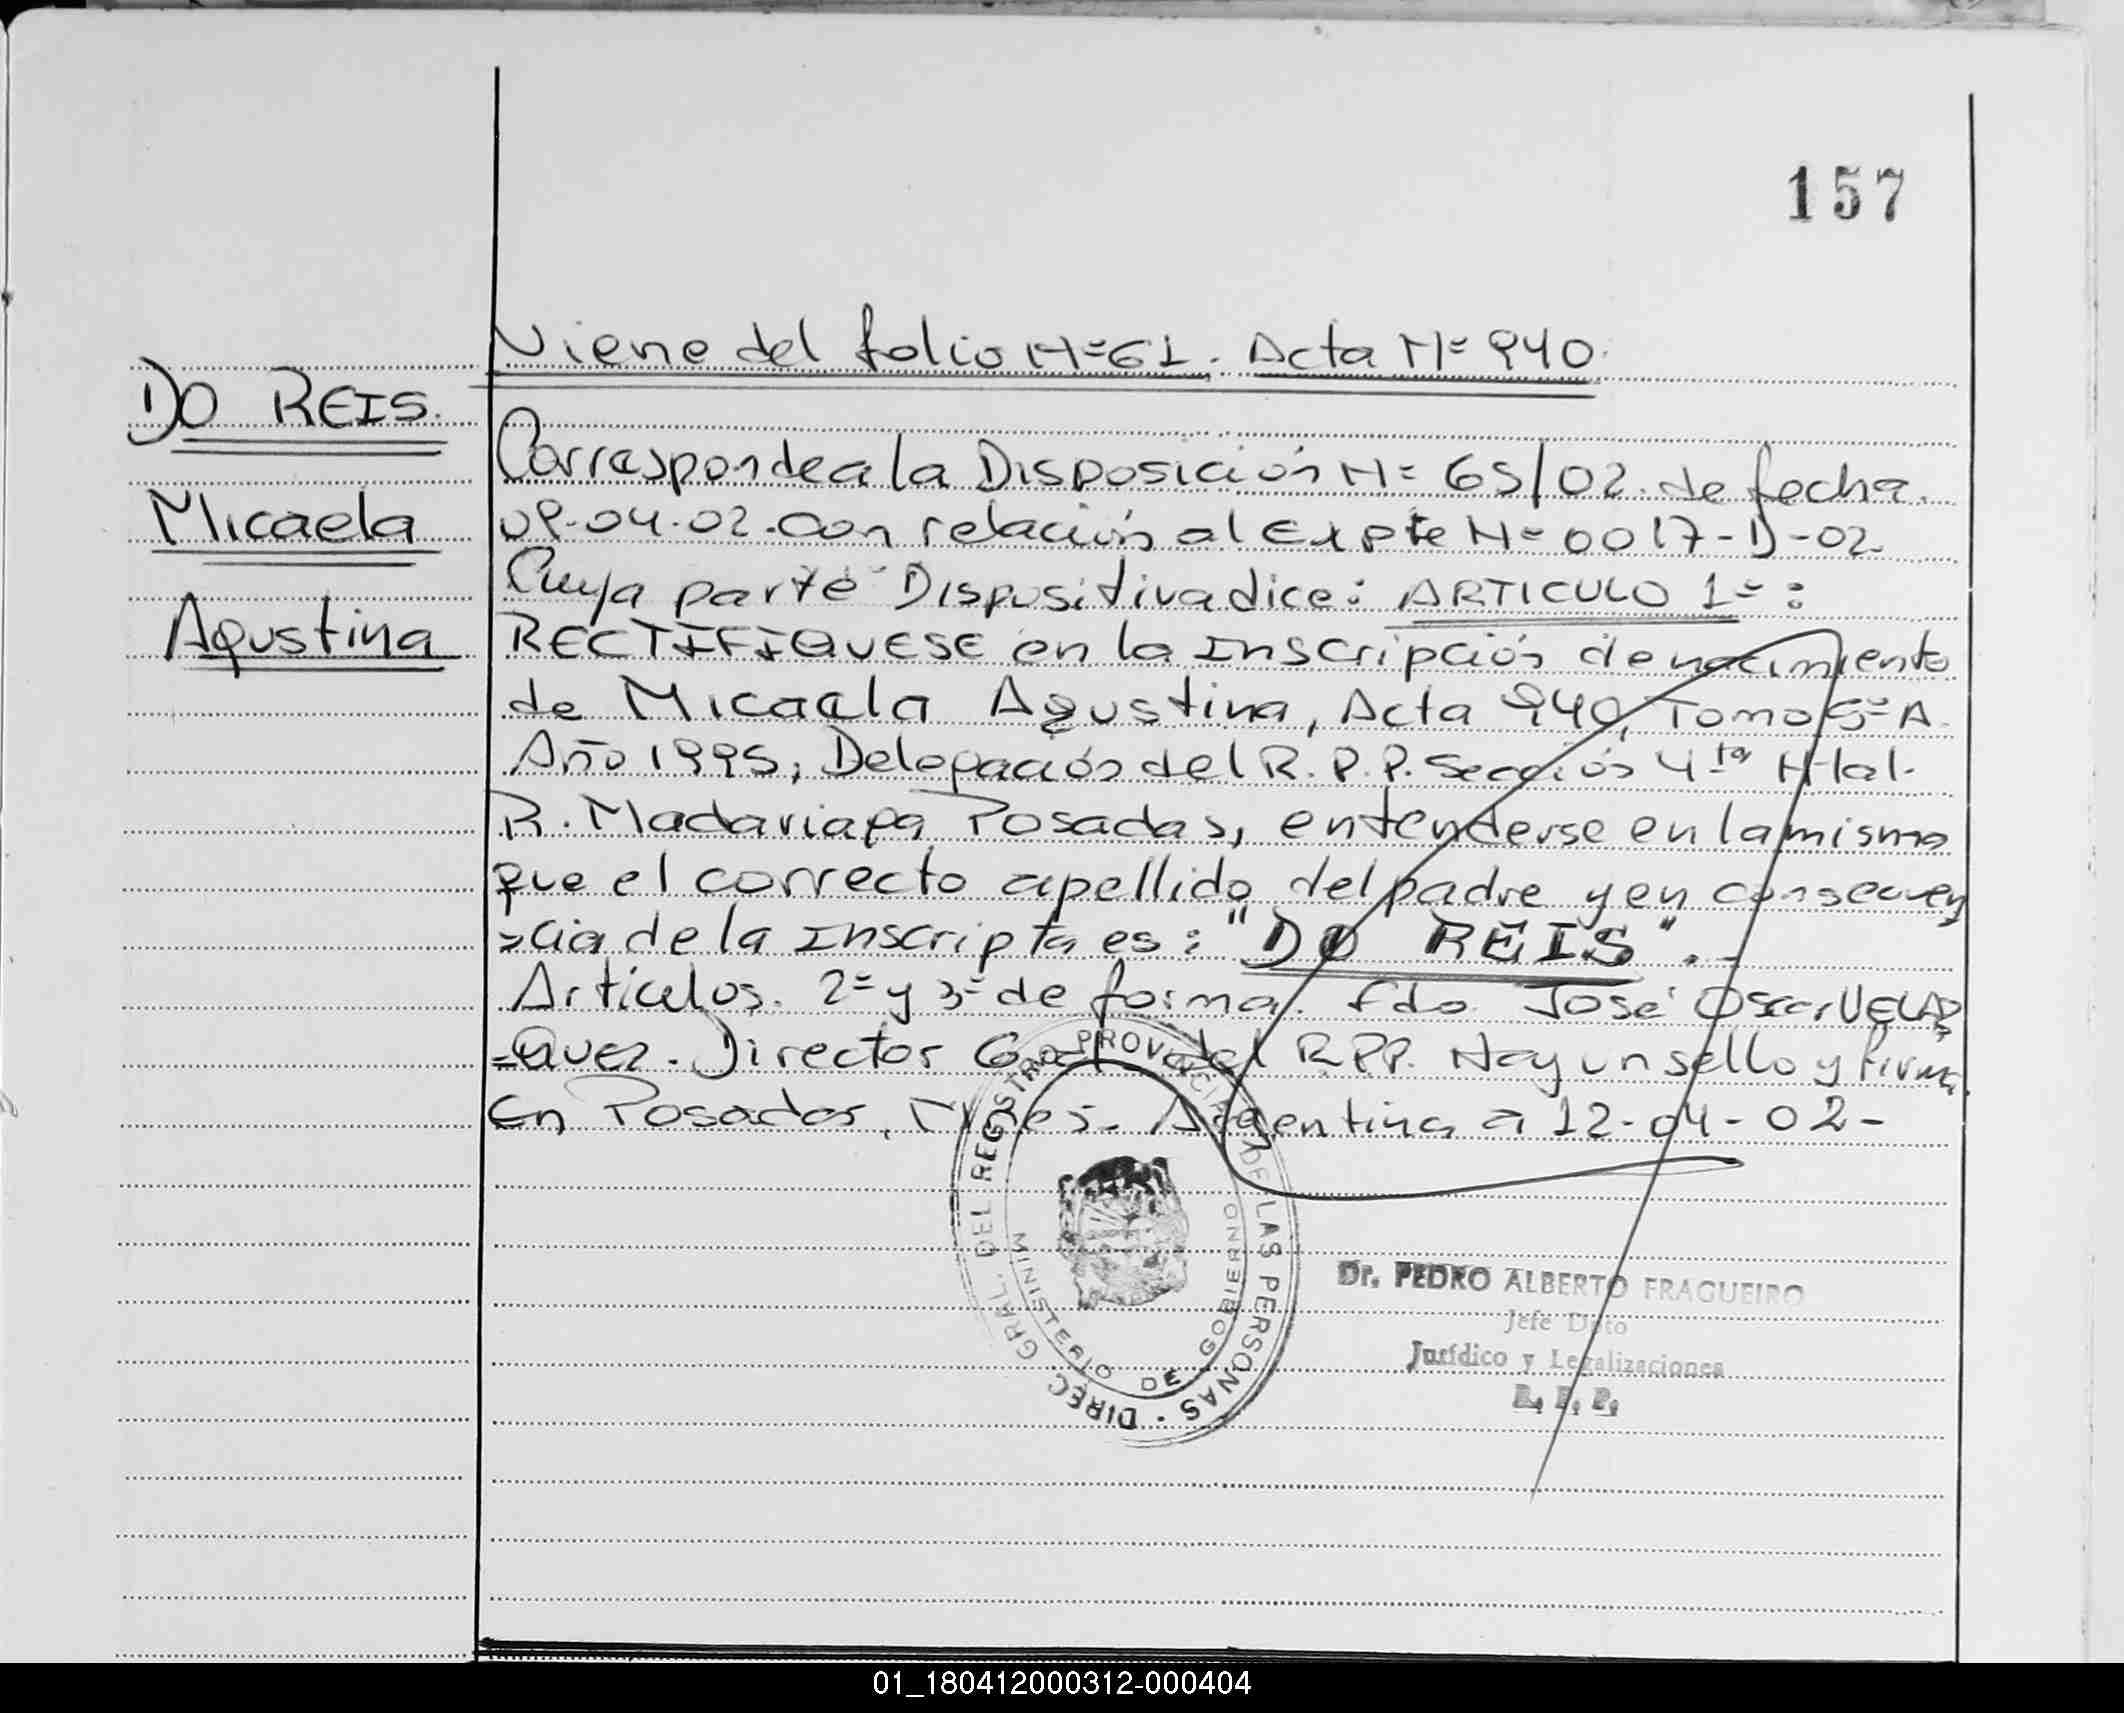 157
Viene del folio Nº 61. Acta Nº 940.
DO REIS.
Micaela
Agustina
Corresponde a la Disposición Nº 65/02. de fecha
09-04-02. con relación al Expte Nº 0017-D-02
Cuya parte Dispositiva dice: ARTICULO 1º:
RECTIFIQUESE en la Inscripción de nacimiento
de Micaela Agustina, Acta 940, Tomo 5º A.
Año 1995, Delegación del R.P.P. Sección 4ta Htal.
R. Madariaga Posadas, entenderse en la misma
que el correcto apellido del padre y en consecuen
=cia de la Inscripta es: "DO REIS".-
Artículos. 2º y 3º de forma. Fdo. José Oscar VELAZ
=Quez. Director Gral del R.P.P. Hay un sello y firma.
En Posadas, Mnes. Argentina a 12-04-02-
DIREC. GRAL. DEL REGISTRO PROVINCIAL DE LAS PERSONAS
MINISTERIO DE GOBIERNO
Dr. PEDRO ALBERTO FRAGUEIRO
Jefe Dpto
Jurídico y Legalizaciones
R. P. P.
01_180412000312-000404